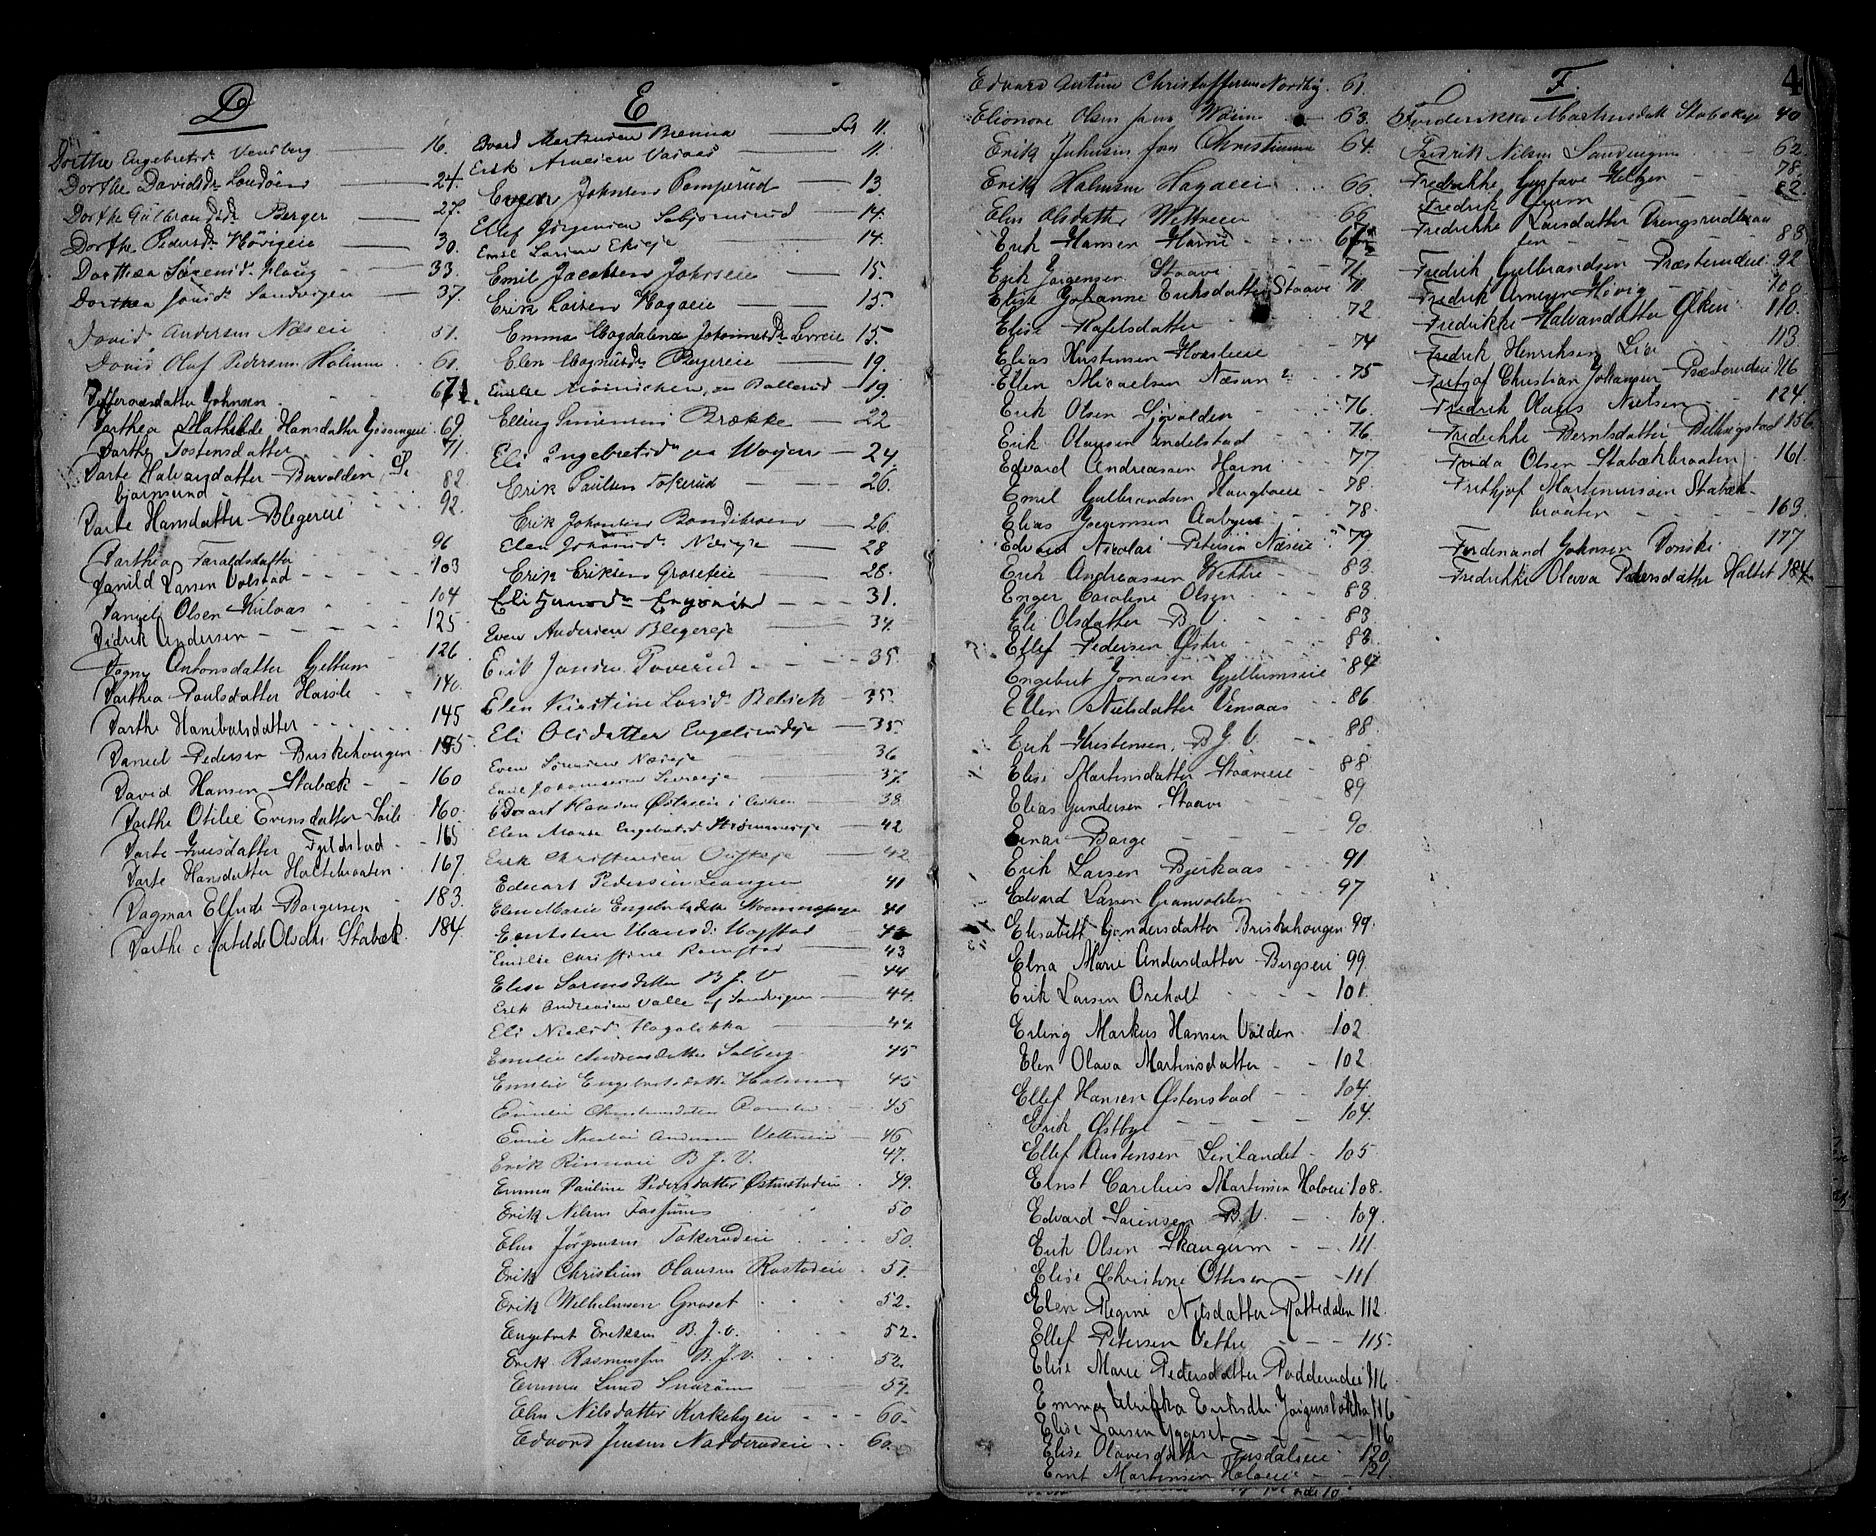 D
Dorthe Engebretsdr Vendberg 16.
Dorthe Davidsdr 24.
Dorthe Gulbrandsdr Berger 27.
Dorthe Pedersdr Hövigeie 30.
Dorthea Sörensdr Haug 33.
Dorthea Jonsdr Sandvigen 37.
David Andersen Næseie 51.
David Olaf Pedersen Holmen 61.
Johnsen 67
Darthea Mathilde Hansdatter Gjøssingeie 69
Darthe Tostensdatter 71.
Darte Halvorsdatter Burvolden, Sp. 82
bjørnsund
Darte Hansdatter Blegereie 92.
Darthea Faraldsdatter 96
Danild Larsen Valstad 103
Daniel Olsen Hvilaas 104
Didrik Andersen 125
Dagny Antonsdatter Gjellum 126
Darthea Paulsdatter Harsle 140.
Darthe Hanibalsdatter 145
Daniel Pedersen Briskehougen 155
David Hansen Stabæk 160
Darthe Otilie Evensdatter 160.
Darte Jensdatter Fjeldstad 165
Darte Hansdatter Holtebraaten 167.
Dagmar Elfride Borgersen 183.
Darthe Matilde Olsdtr Stabæk 184.
E
Edvard Martinsen Brenna fol 11.
Erik Arnesen 11.
Johnsen Pomperud 13
Ellef Jörgensen 14.
Emil Larsen Ekeeje 14.
Emil Jacobsen Johrseie 15.
Erik Larsen Hagaeie 15.
Emma Magdalena Johannesdr Levreie 15.
Elen Magnusdr Bergereie 19.
Emilie Ballerud 19.
Elling Simonsen Brække 22
Eli Engebretsdr paa Wøyen 24.
Erik Paulsen Tokerud 26.
Erik Johansen 26.
Elen Johansdr Næseje 28
Erik Eriksen Groseteie 28.
Eli 31.
Even Andersen Blegereje 34.
Erik Jansen Toverud 35.
Elen Kirstine Larsdr 35.
Eli Olsdatter Engelsrudeje 35.
Even Sörensen Næseje 36
Emil Johannesen 37.
Edvart Hansen Østreeie i Asker 38
Elen Marie Engebretsdr Strømmereje 42
Erik Christensen 42
Edvart Pedersen Leangen 41
Elen Marie Engebretsdatter Strømmereje 41
Hansdr
Emilie Christine Ramstad 43
Elise Larensdatter B. J. V 44
Erik Andreasen Valle af Sandvigen 44.
Eli Nielsdr Hagaløkka 44
Emilie Andreasdatter Solberg 45
Emilie Engebretsdatter Holmen 45
Emilie Christiansdatter 45
Emil Nicolai Andersen Vettreeie 46
Erik Rinneeie B. J. V. 47.
Emma Pauline Pedersdatter Østenstadeie 49.
Erik Nilsen Fossum 50
Elen Jørgensen Tokerudeie 50.
Erik Christian Olausen Rustadeie 51.
Erik Wilhelmsen Groset 52.
Engebret Eriksen B. J. V. 52.
Erik Rasmussen B. J. V. 52.
Emma Lund Snarøen 57.
Elen Nilsdatter Kirkebyeie 60
Edvard Jensen Nadderudeie 60.
Edvard Antine Christoffersen Nordby 61.
Elionore Olsen 63.
Erik Johnsen fra Christiania 64.
Erik Halvorsen Hagaeie 66.
Elen Olsdatter Wettreeie 66
Erik Hansen Horni 67
Erik Jørgensen Staavi 71.
Elise Johanne Eriksdatter Staavi 71
Elise Rafelsdatter 72
Elias Kristensen Horsleeie 74
Ellen Micaelsen Næsøen 75
Erik Olsen Sjøvolden 76.
Erik Olausen Undelstad 76.
Edvard Andreassen Horni 77
Emil Gulbrandsen Haugboeie 78.
Elias Joramsen Aabyeie 78
Edvard Nicolai Petersen Næseie 79
Erik Andreassen Wettre 83
Enger Caroline Olsen 83.
Eli Olsdatter B. V. 83
Ellef Pedersen Østre 83.
Engebret Jonasen Gjellumseie 84
Ellen Nielsdatter Vensaas 86
Erik Kristensen, B. J. V. 88
Elise Martinsdatter Staaveie 88
Elias Gundersen Staavi 89
Einar Borge 90.
Erik Larsen Bjerkaas 91
Edvard Larsen Granvolden 97
Elisabett Gundersdatter Briskehougen 99.
Elna Marie Andersdatter Bergseie 99
Erik Larsen Oreholt 101.
Erling Markus Hansen Volden 102
Elen Olava Martinsdatter 102
Ellef Hansen Østenstad 104.
Erik Østbye 104.
Ellef Austensen Livlandet 105
Ernst Carelius Martinsen Holoeie 108.
Edvard Sørensen B. V. 109.
Erik Olsen Skaugum 111.
Elise Christine Ottesen 111
Elen Regine Nilsdatter Rottedalen 112
Ellef Petersen Vettre 115.
Elise Marie Pedersdatter Podderudeie 116
Emma Ulrikka Eriksdtr Jørgensløkka 116
Elise Larsen Yggeset 116
Elise Olavesdatter 120
Ernt Martinsen Holoeie 121.
4
F.
Frederikke Martinsdatt Stabækeje 40
Fredrik Nilsen Sandvigen 62.
Fredrikke Gustave Meltzer 78.
Fredrik Grum 82.
Fredrikke Larsdatter Drengsrudbraa
ten 83.
Fredrik Gulbrandsen Præsterudeie 92
Fredrik Arnesen Høvig 100
Fredrikke Halvarsdatter Østern 110.
Fredrik Henriksen Lie 113.
Fritjof Christian Johansen Præsterudeie 116
Fredrik Olaus Nielsen 124.
Fredrikke Berntsdatter Billingstad 156.
Frida Olsen Stabækbraaten 161.
Frithjof Martinussen Stabæk
braaten 163
Ferdinand Johnsen Vonski 177
Fredrikke Olava Pedersdatter Haltet 184